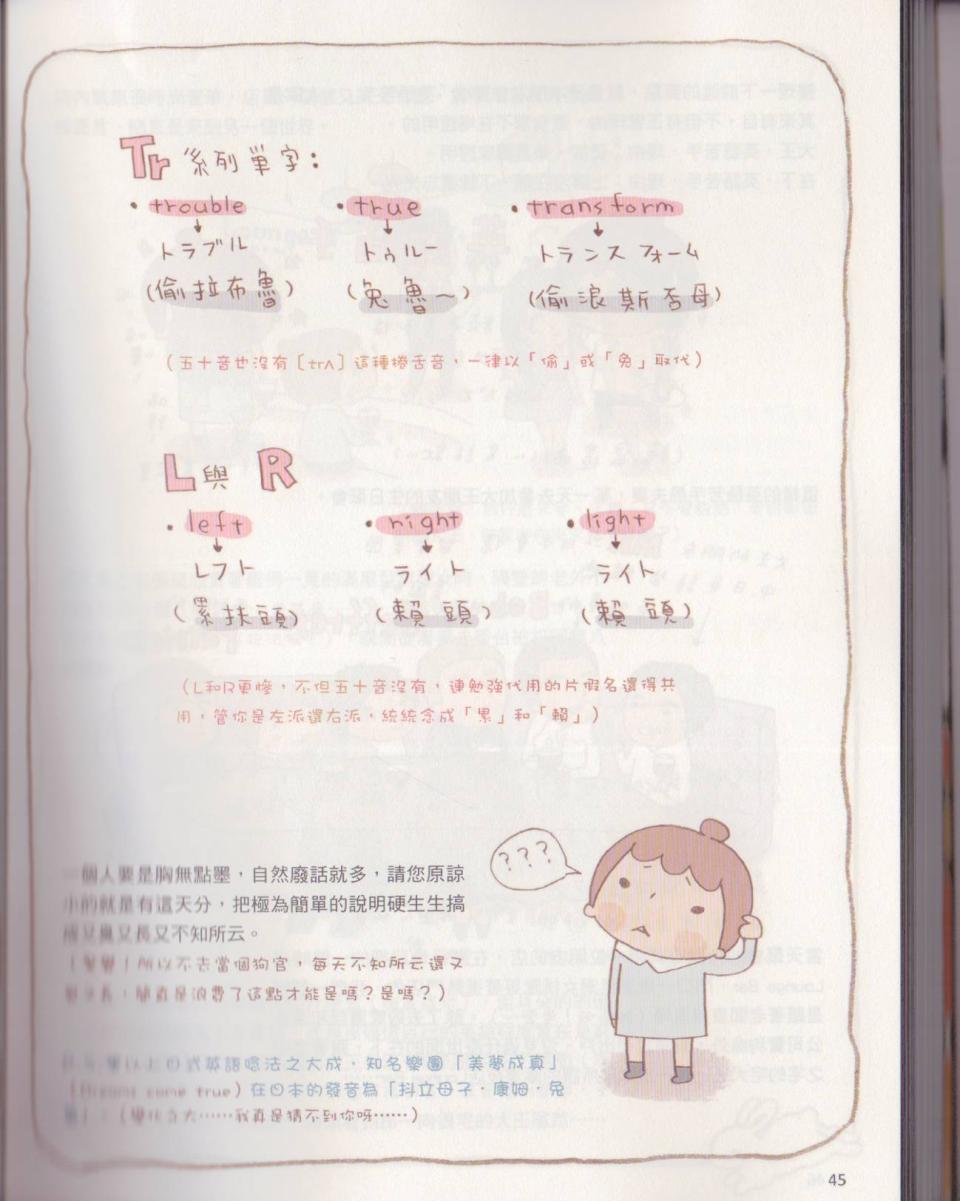 Tr 系列單字：
• trouble • true • transform
トラブル トゥルー トランスフォーム
(偷拉布魯) (兔魯～) (偷浪斯否母)
(五十音也沒有〔trʌ〕這種捲舌音，一律以「偷」或「兔」取代)
L與R
• left • right • light
レフト ライト ライト
(累扶頭) (賴頭) (賴頭)
(L和R更慘，不但五十音沒有，連勉強代用的片假名還得共
用，管你是左派還右派，統統念成「累」和「賴」)
???
一個人要是胸無點墨，自然廢話就多，請您原諒
小的就是有這天分，把極為簡單的說明硬生生搞
成又臭又長又不知所云。
所以不去當個狗官，每天不知所云還又
臭又長，簡直是浪費了這點才能是嗎？是嗎？)
以上日式英語唸法之大成，知名樂團「美夢成真」
(Dreams come true) 在日本的發音為「抖立母子．康姆．兔
魯」！(變化之大……我真是猜不到你呀……)
45